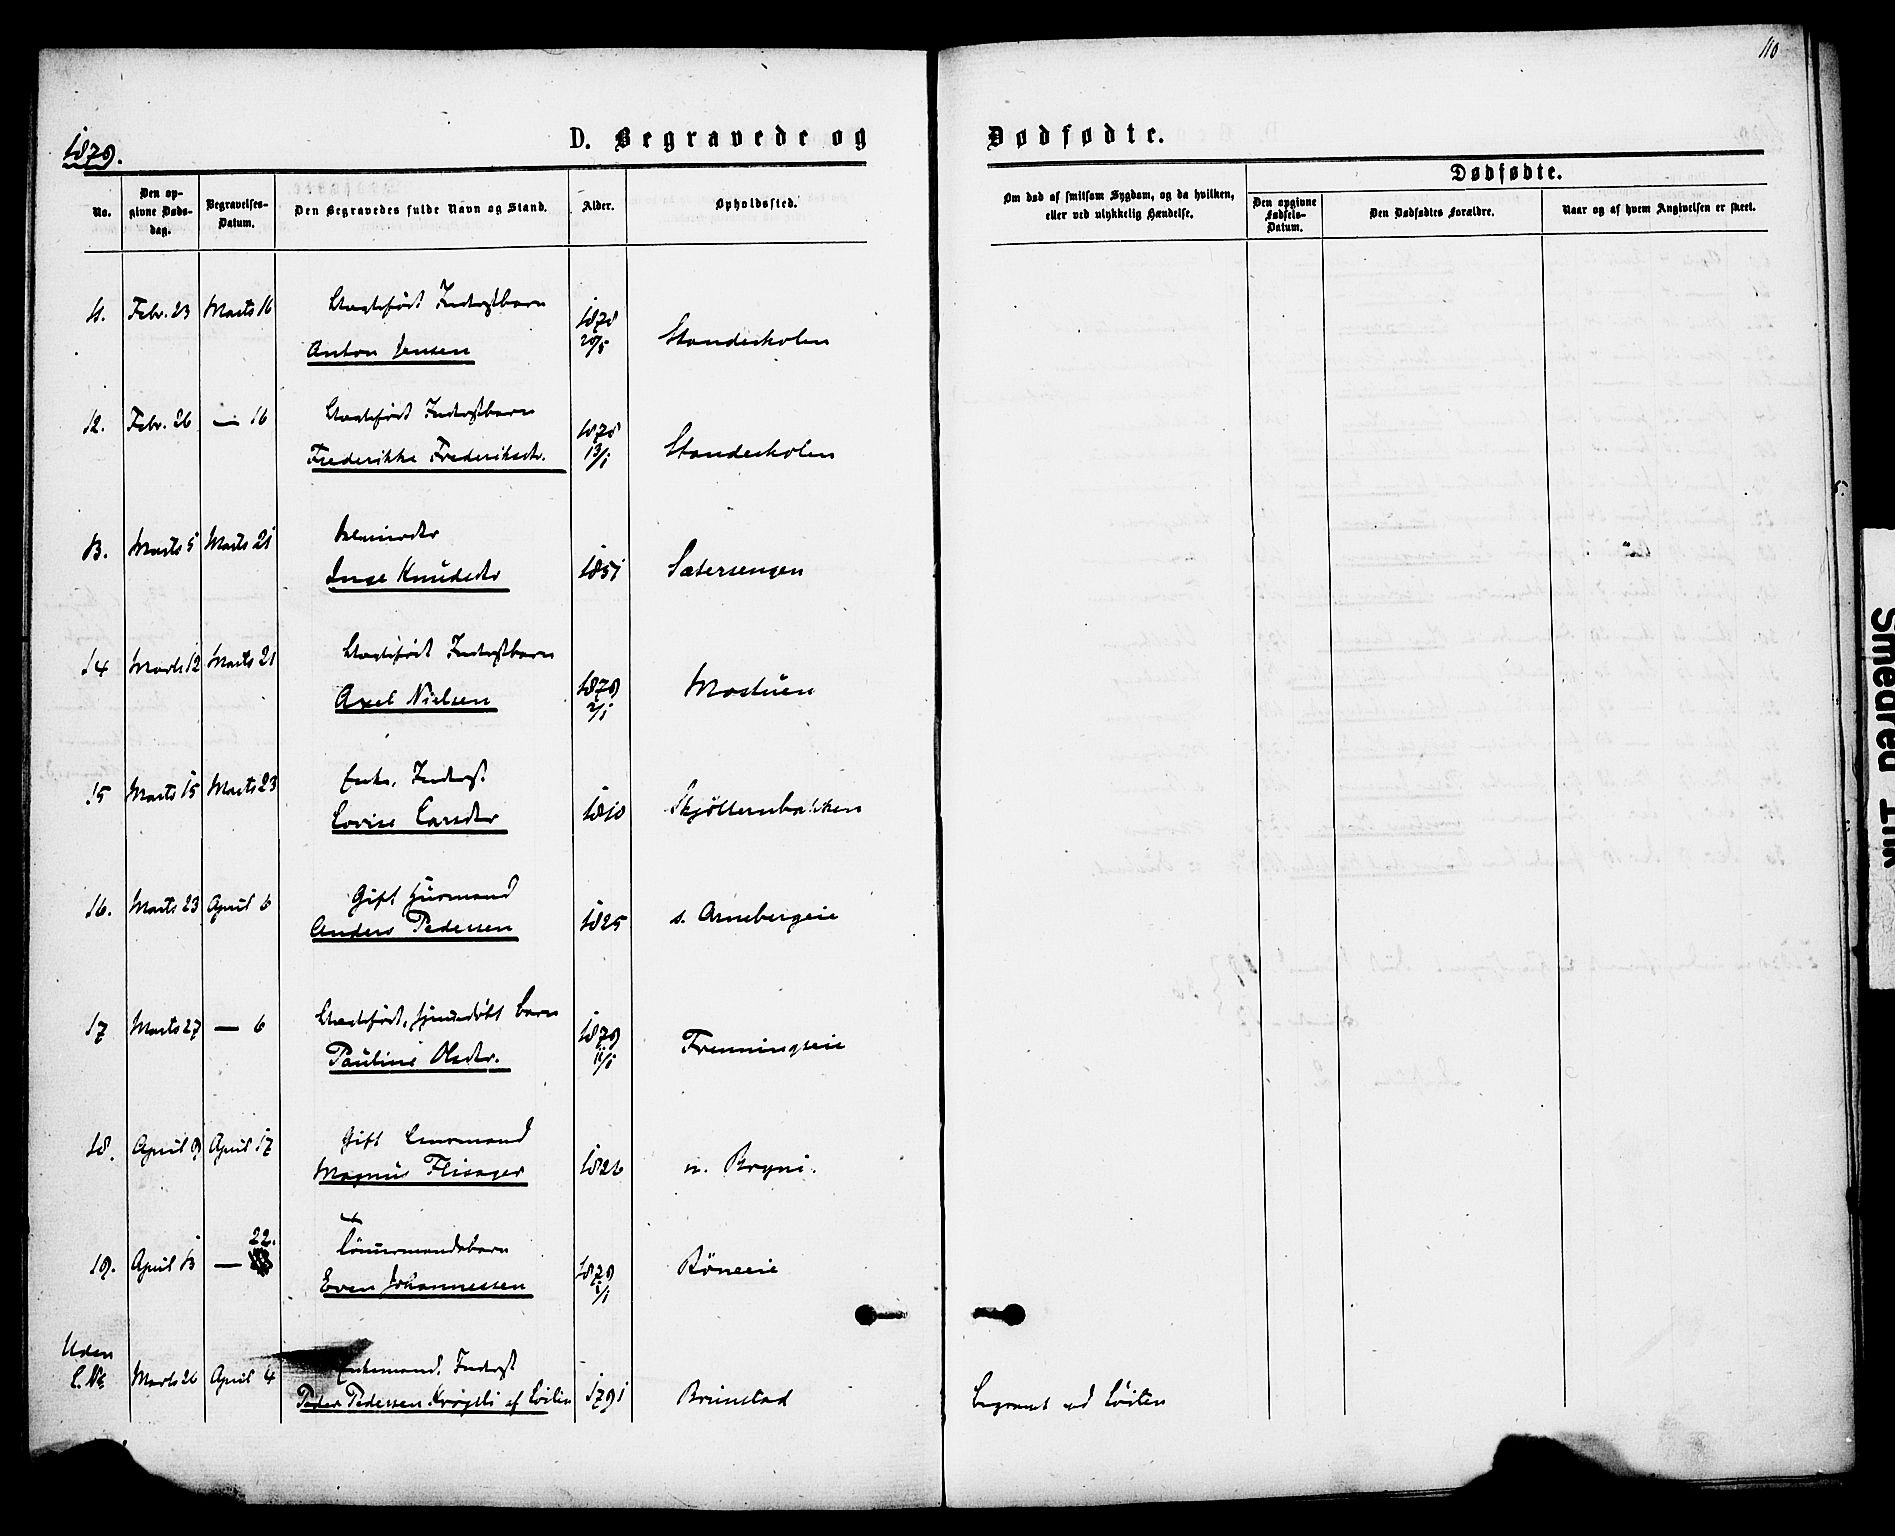 110
1879.
D. Begravede og Dødfødte.
No.
Den opgivne Dødsdag.
Begravelses-Datum.
Den Begravedes fulde Navn og Stand.
Alder.
Opholdssted.
Om død af smitsom Sygdom, og da hvilken, eller ved ulykkelig Hændelse.
Dødfødte.
Den opgivne Fødsels-Datum.
Den Dødfødtes Forældre.
Naar og af hvem Angivelsen er skeet.
11. Febr. 23 Marts 16 Uægtefødt Inderstbarn
Anton Jensen 1878 20/5
12. Febr. 26 — 16 Uægtefødt Inderstbarn
Frederikke Frederiksdtr. 1878 13/1
13. Marts 5 Marts 21
Inge Knudsdtr 1851 Sætersengen
14 Marts 12 Marts 21 Uægtefødt Inderstbarn
Axel Nielsen 1879 2/1 Mostuen
15 Marts 15 Marts 23 Enke, Inderst
Lovise Larsdtr 1810 Skjøllernbakken
16. Marts 23 April 6 Gift Huusmand
Anders Pedersen 1825 s. Arnebergeie
17 Marts 27 — 6 Uægtefødt, hjemmedøbt Barn
Pauline Olsdtr. 1879 11/1 Frenningseie
18. April 9 April 17 Gift
Magnus Flisager 1826 n. Bryni.
19. April 13 — 22.
Even Johannessen 1879 Böneeie
Uden
L.No Marts 26 April 4 Enkemand. Inderst
Peder Pedersen af Löiten 1791 Brunstad
Begravet ved Löiten
Smeared Ink